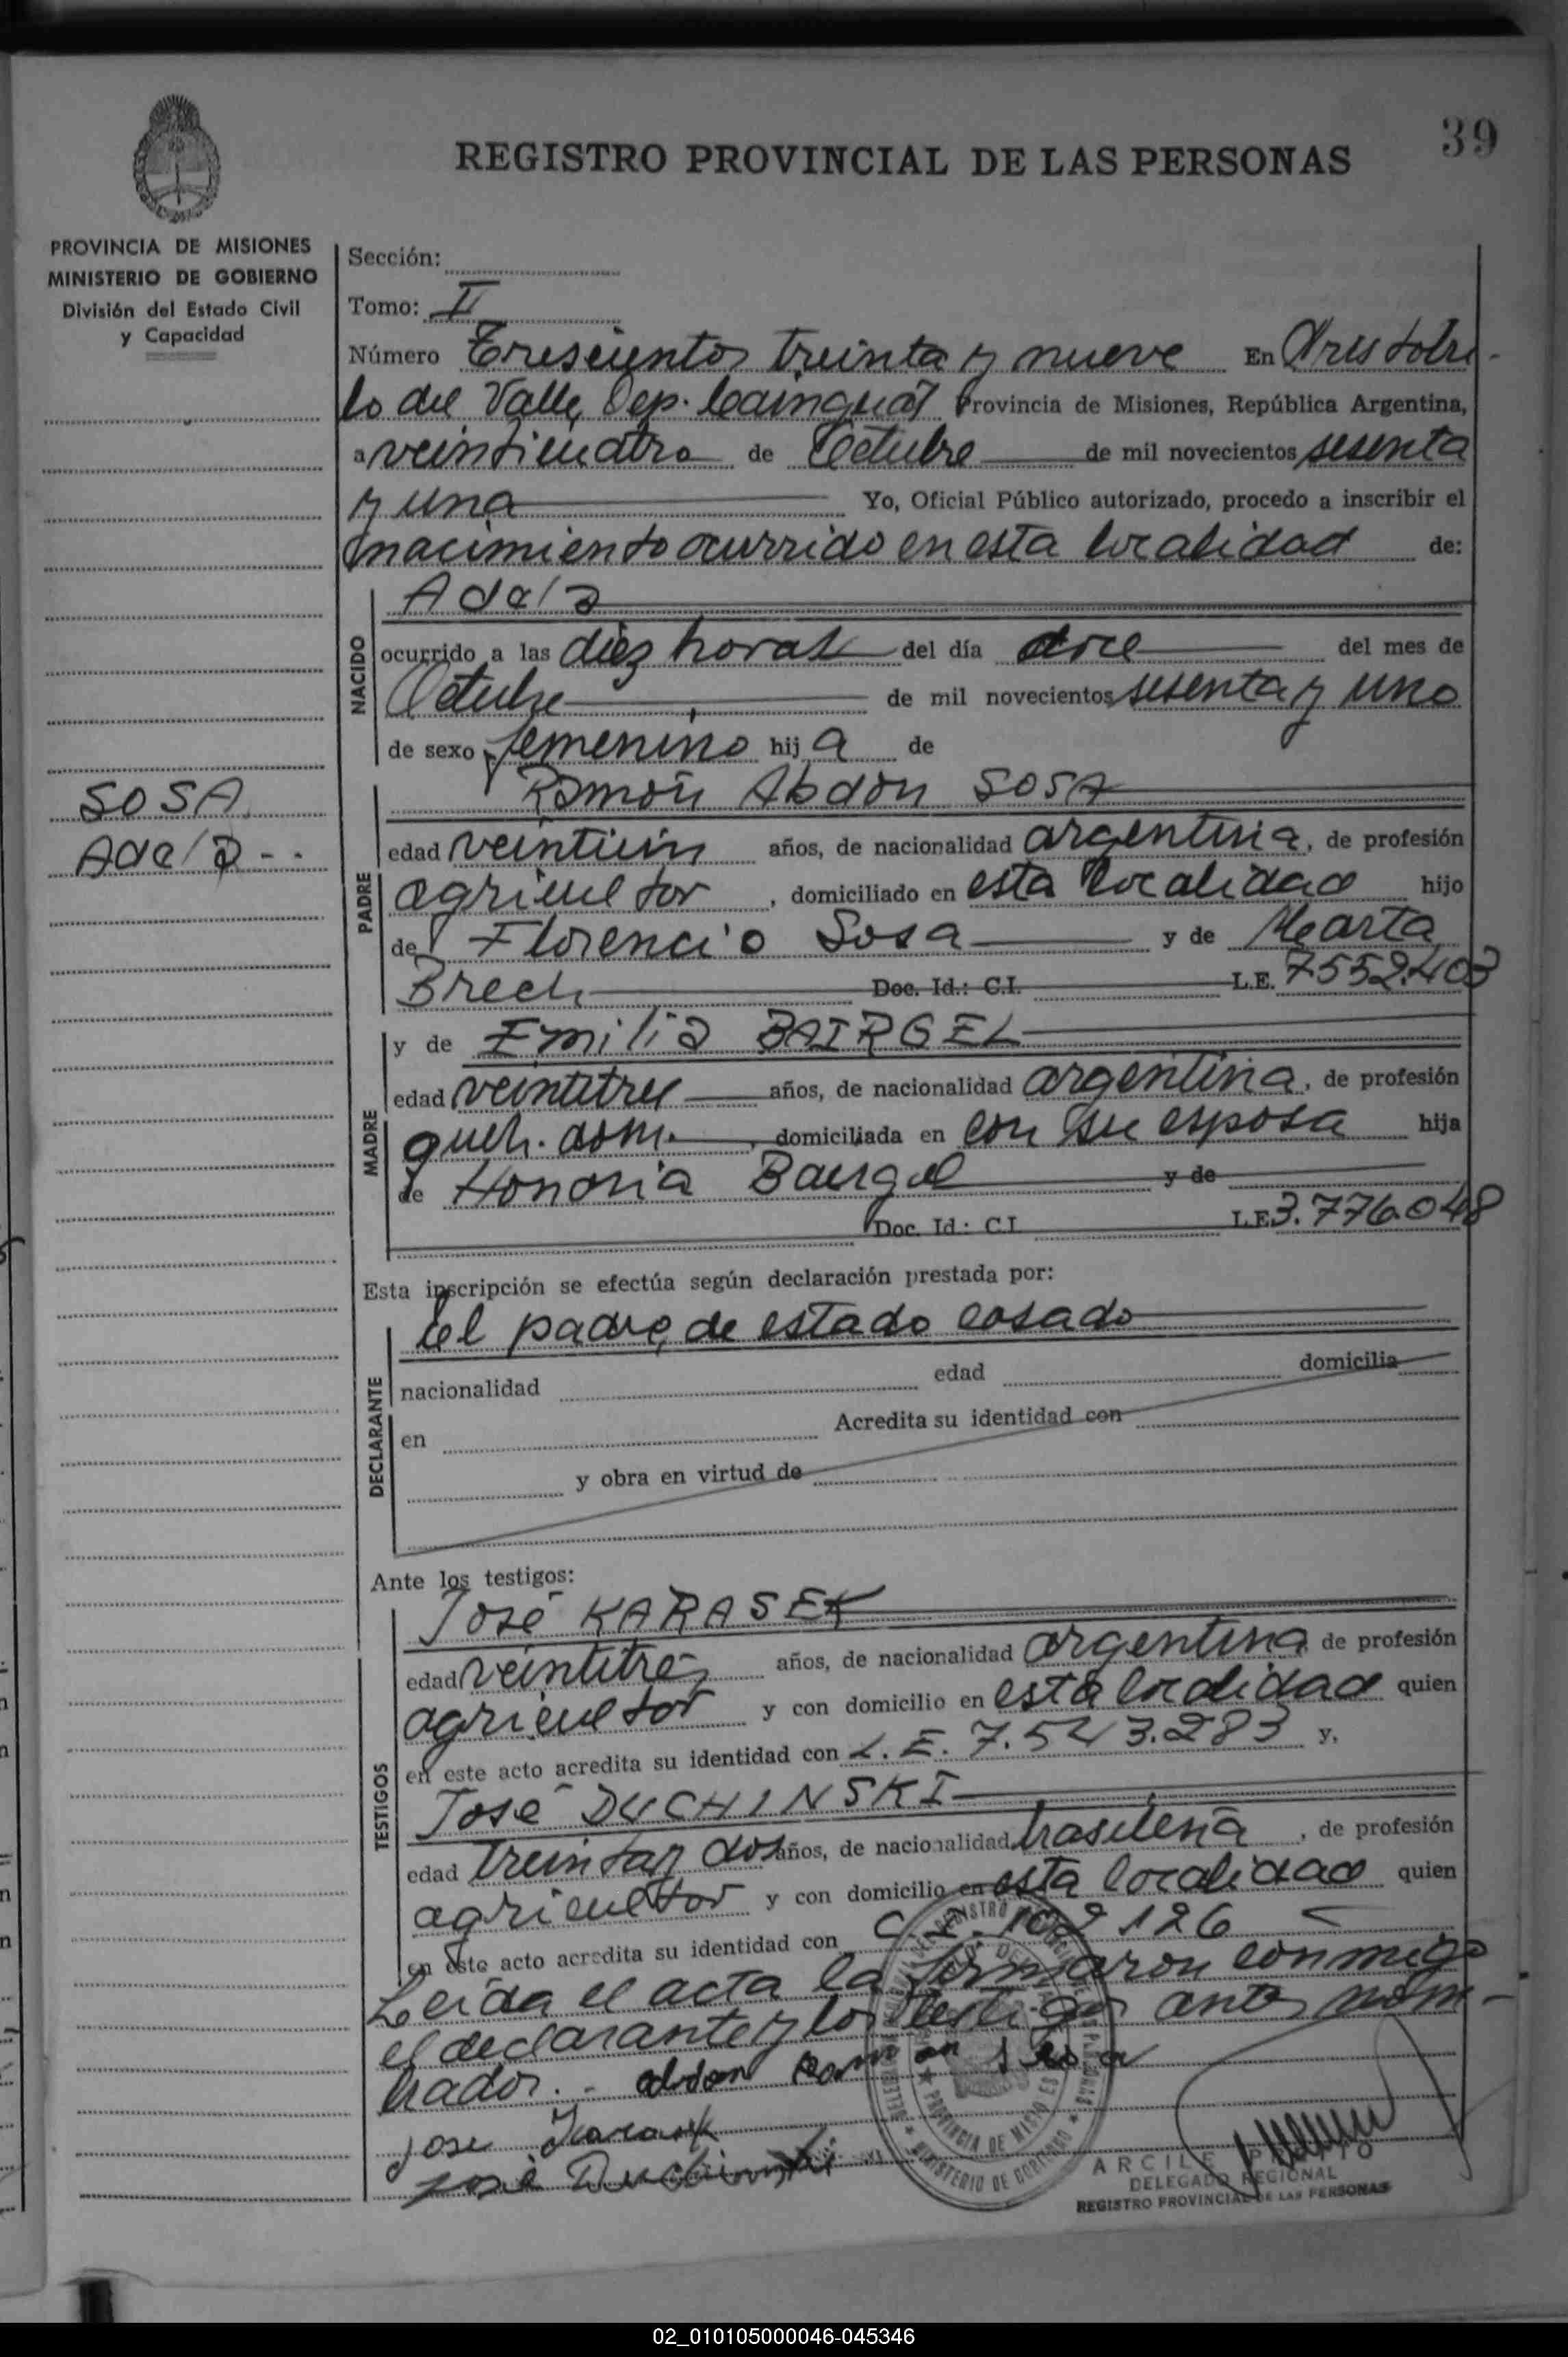 39
REGISTRO PROVINCIAL DE LAS PERSONAS
PROVINCIA DE MISIONES
MINISTERIO DE GOBIERNO
División del Estado Civil
y Capacidad
SOSA
Ada/a - -
Sección:
Tomo: II
Número Tresciento treinta y nueve En Aristóbu-
lo del Valle, Dep. Cainguás Provincia de Misiones, República Argentina,
a veinticuatro de Octubre de mil novecientos sesenta
y uno Yo, Oficial Público autorizado, procedo a inscribir el
nacimiento ocurrido en esta localidad de:
NACIDO
Ada/a
ocurrido a las diez horas del día doce del mes de
Octubre de mil novecientos sesenta y uno
de sexo femenino hija de
PADRE
Ramón Abdón SOSA
edad veintiún años, de nacionalidad argentina, de profesión
agricultor, domiciliado en esta localidad hijo
de Florencio Sosa y de Marta
Brech Doc. Id.: C.I. L.E. 7552.403
MADRE
y de Emilia BAIRGEL
edad veintitres años, de nacionalidad argentina, de profesión
queh. dom., domiciliada en con su esposo hija
de Honoria Bairgel y de
Doc. Id.: C.I. L.E. 3.776.048
Esta inscripción se efectúa según declaración prestada por:
DECLARANTE
el padre, de estado casado
nacionalidad edad domicilia
en Acredita su identidad con
y obra en virtud de
Ante los testigos:
TESTIGOS
José KARASEK
edad veintitrés años, de nacionalidad argentina de profesión
agricultor y con domicilio en esta localidad quien
en este acto acredita su identidad con L.E. 7.543.283 y,
José DUCHINSKI
edad treinta y dos años, de nacionalidad brasileña, de profesión
agricultor y con domicilio en esta localidad quien
en este acto acredita su identidad con C.I. 102126
Leída el acta la firmaron conmigo
el declarante y los testigos antes nom-
brados. - abdon Ramon Sosa
jose Karasek
José Duchinski
PROVINCIA DE MISIONES
MINISTERIO DE GOBIERNO
DELEGADO REGIONAL
REGISTRO PROVINCIAL DE LAS PERSONAS
02_010105000046-045346